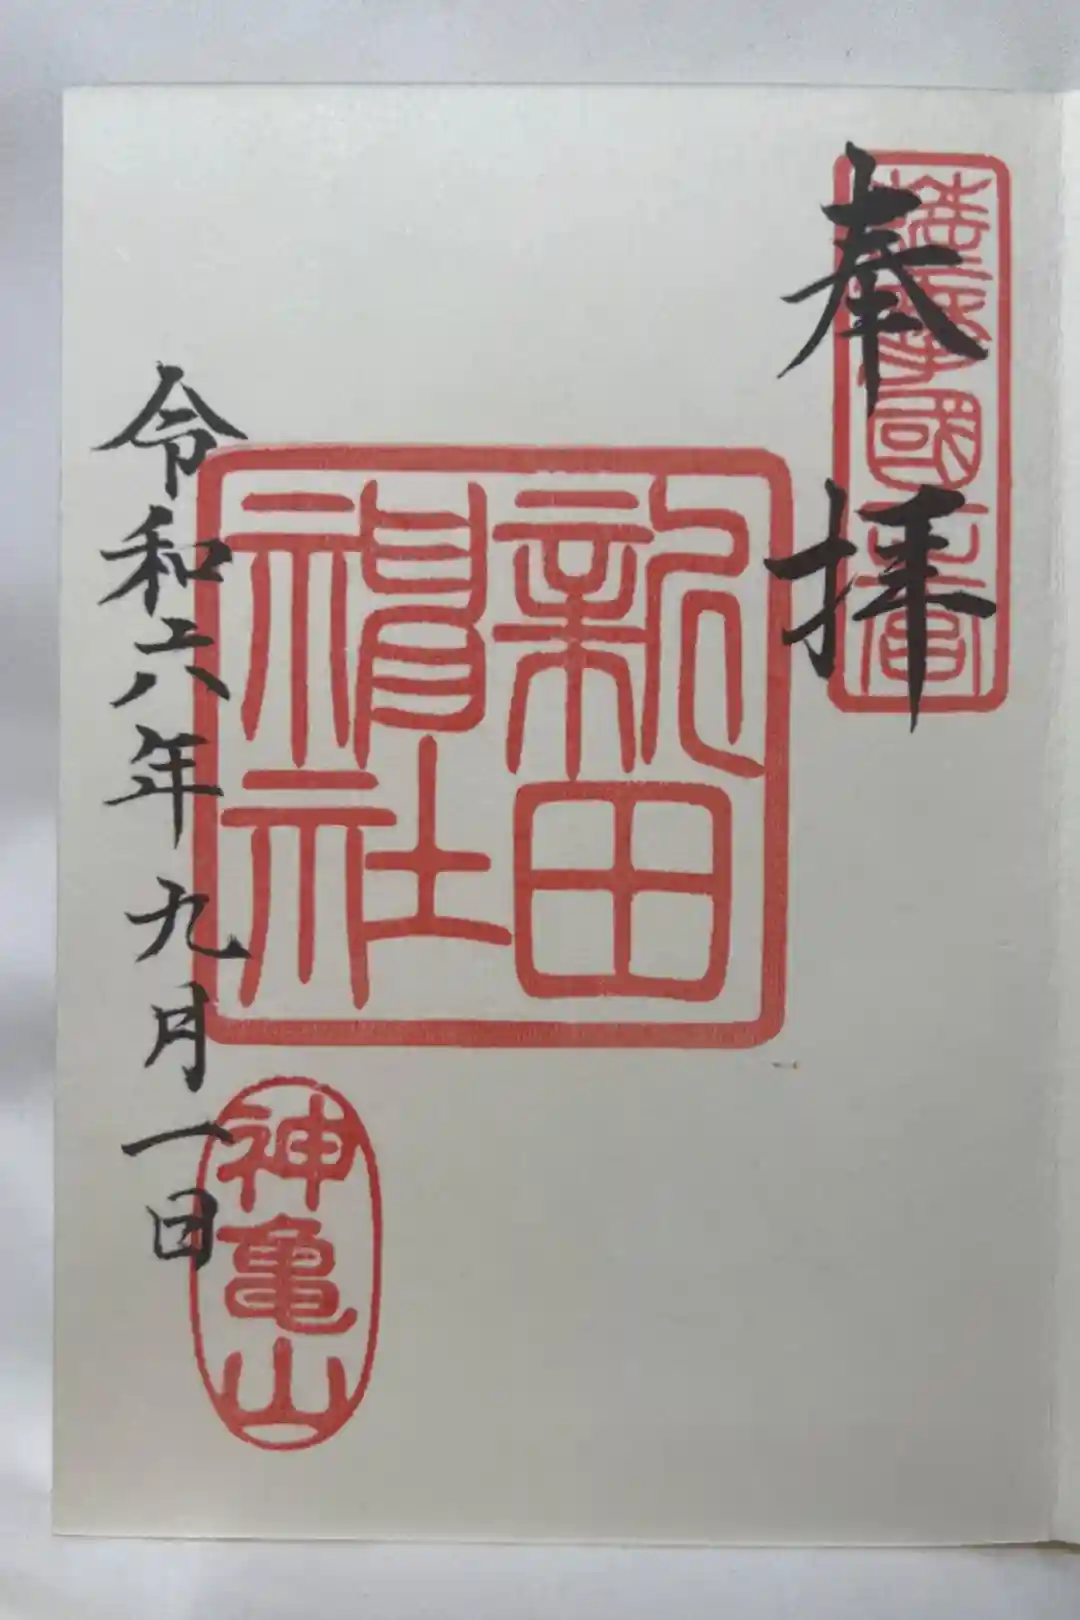 奉拝
薩摩國一之宮
新田
神社
令和六年九月一日
神亀山